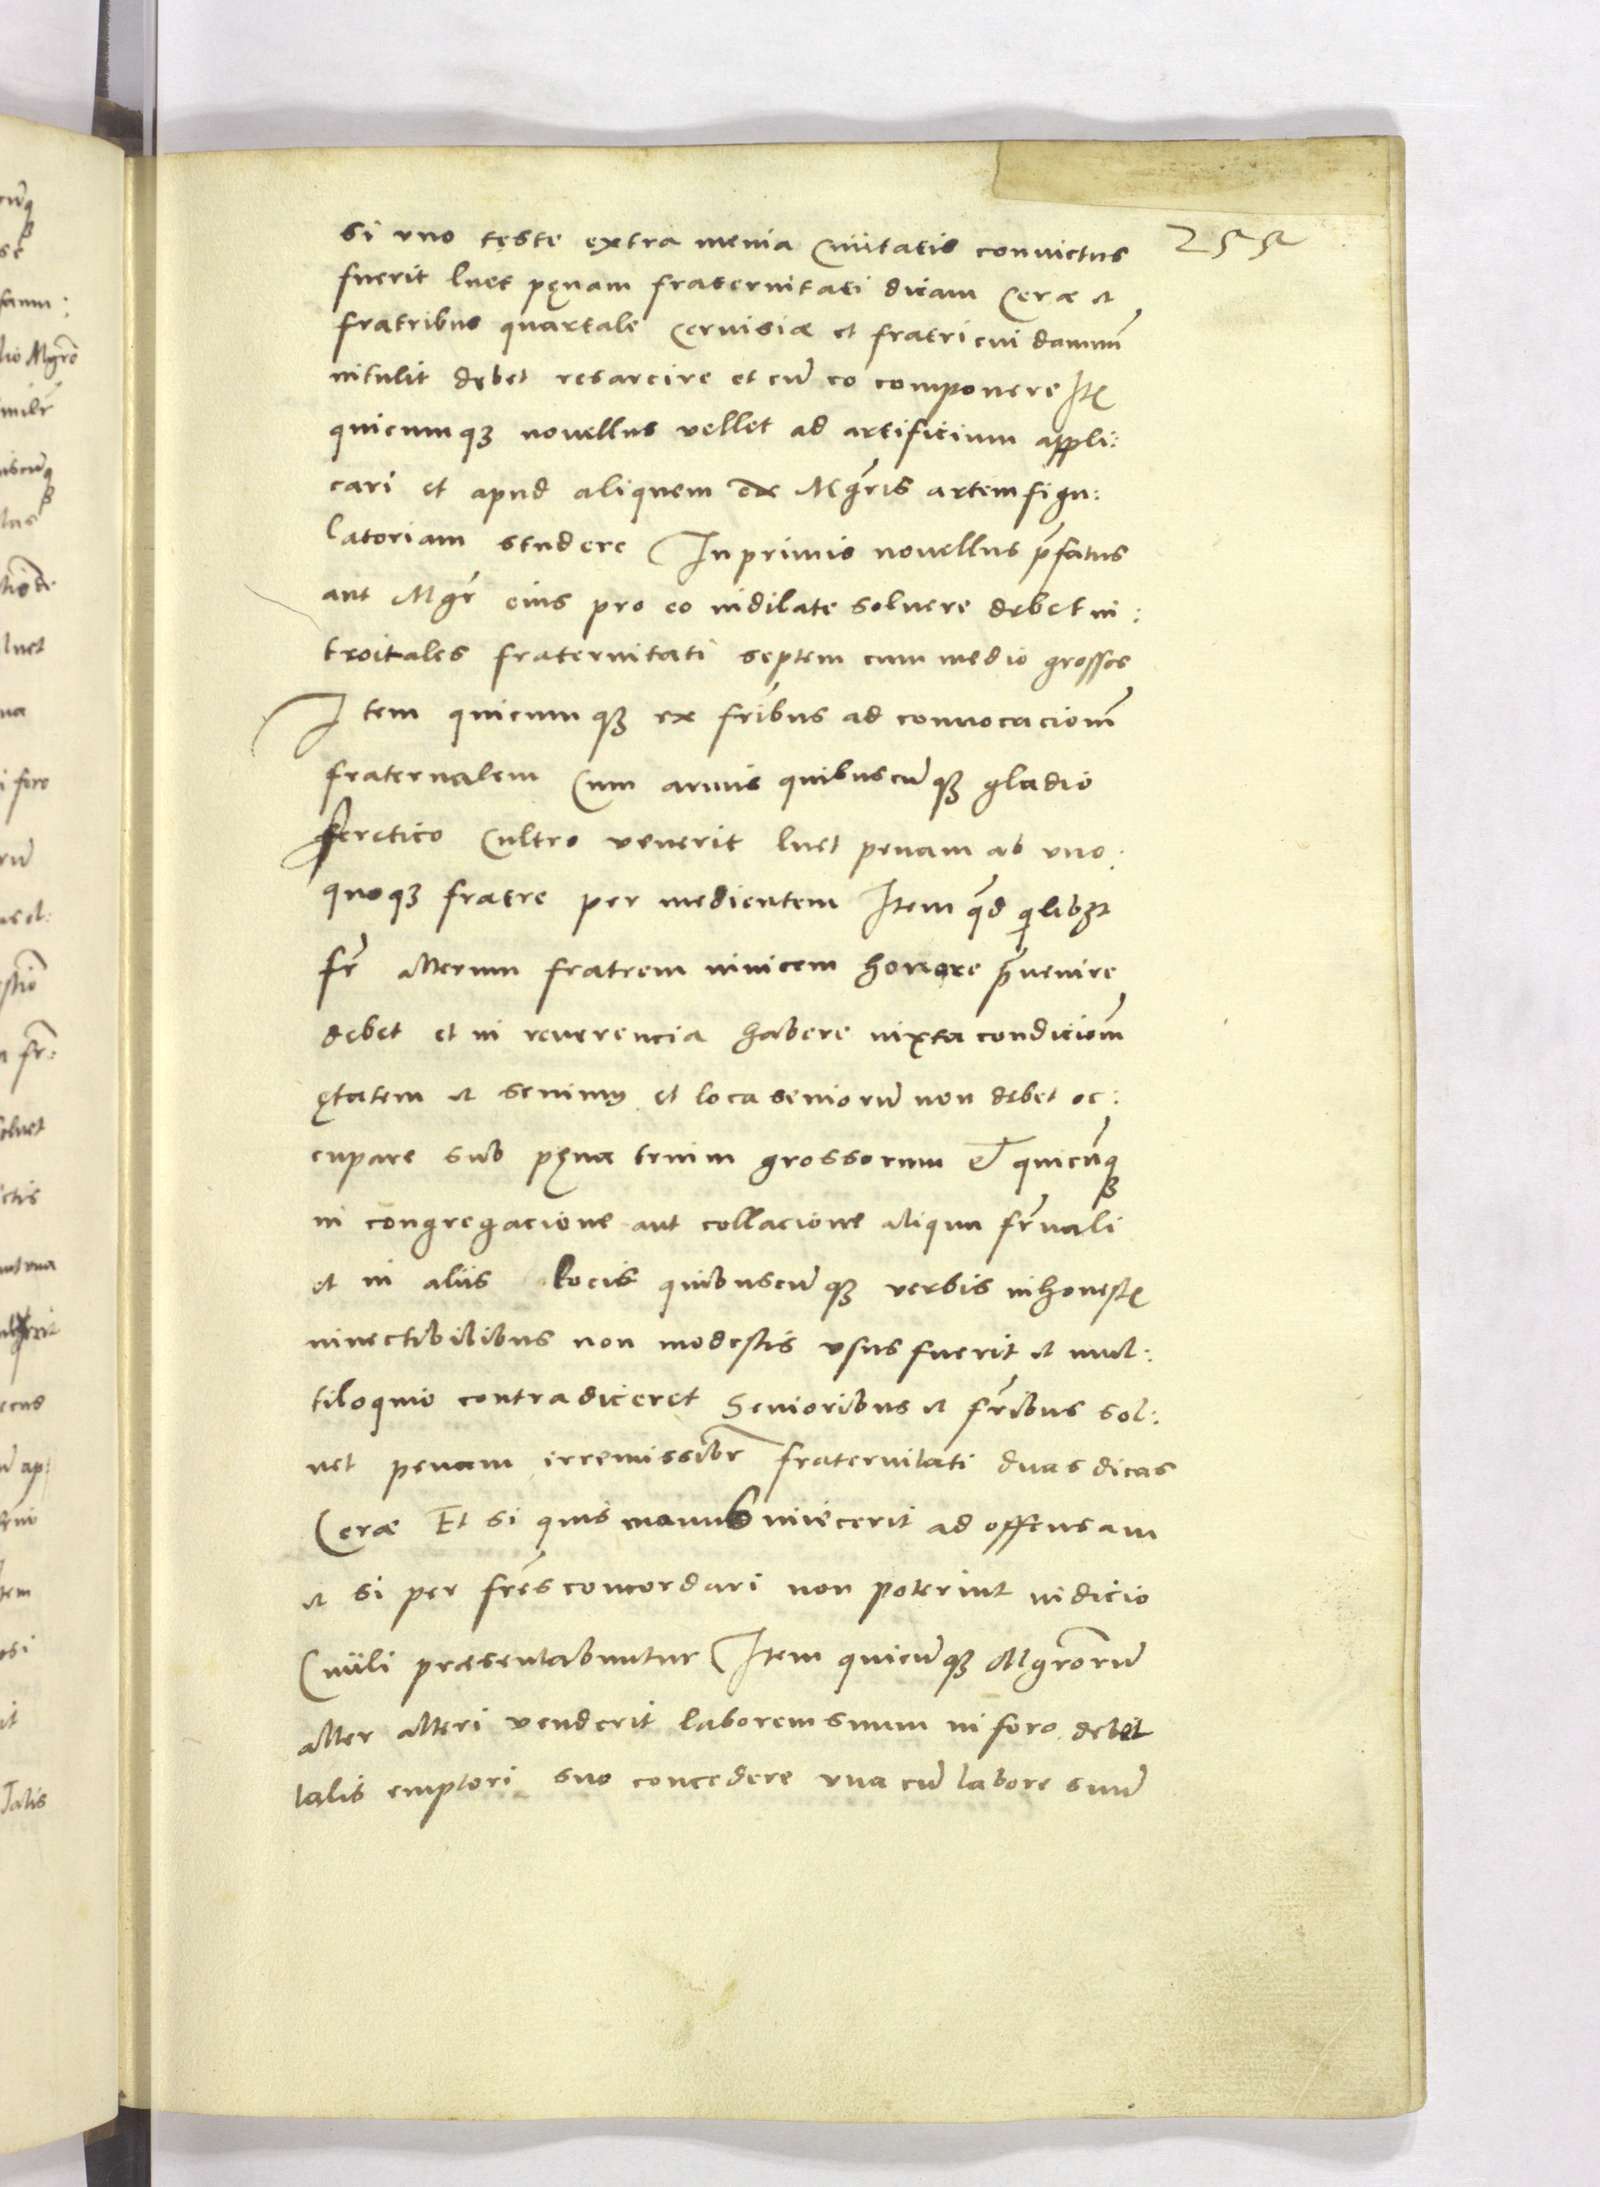 255
si vno teste extra menia Ciuitatis conuictus
fuerit luet pęnam fraternitati dicam Ceræ et
fratribus quartale Ceruisiæ et fratri cui damnū
intulit debet resarcire et cū eo componere Itē
quicumqꝫ nouellus vellet ad artificium appli:
cari et apud aliquem ex Mgr̄is artem figu:
latoriam studere Inprimis nouellus p̄fatus
aut Mgr̄ eius pro eo indilate soluere debet in:
troitales fraternitati septem cum medio grosses
Item quicumqꝫ ex fr̄ibus ad conuocacionē
fraternalem Cum armis quibuscūqꝫ gladio
Cultro venerit luet penam ab vno:
quoqꝫ fratre per medientem Item qd̄ qilibꝫt
fr̄ alterum fratrem inuicem honore p̄uenire
debet et in reuerencia habere iuxta condicionē
ętatem et senium et loca seniorū non debet oc:
cupare sub pęna trium grossorum Et quicūqꝫ
in congregacione aut collacione aliqua fr̄nali
et in aliis locis quibuscūqꝫ verbis inhonestē
inuectibilibus non modestis vsus fuerit et mul:
tiloquio contradiceret Senioribus et fr̄ibus sol:
uet penam irremissibr̄ fraternitati duas dicas
Ceræ Et si quis manus iniecerit ad offensam
et si per fr̄es concordari non poterint iudicio
Ciuili præsentabuntur Item quicūqꝫ Mgr̄orū
alter alteri vendcrit laborem suum in foro debet
talis emptori suo concedere vna cū labore suū